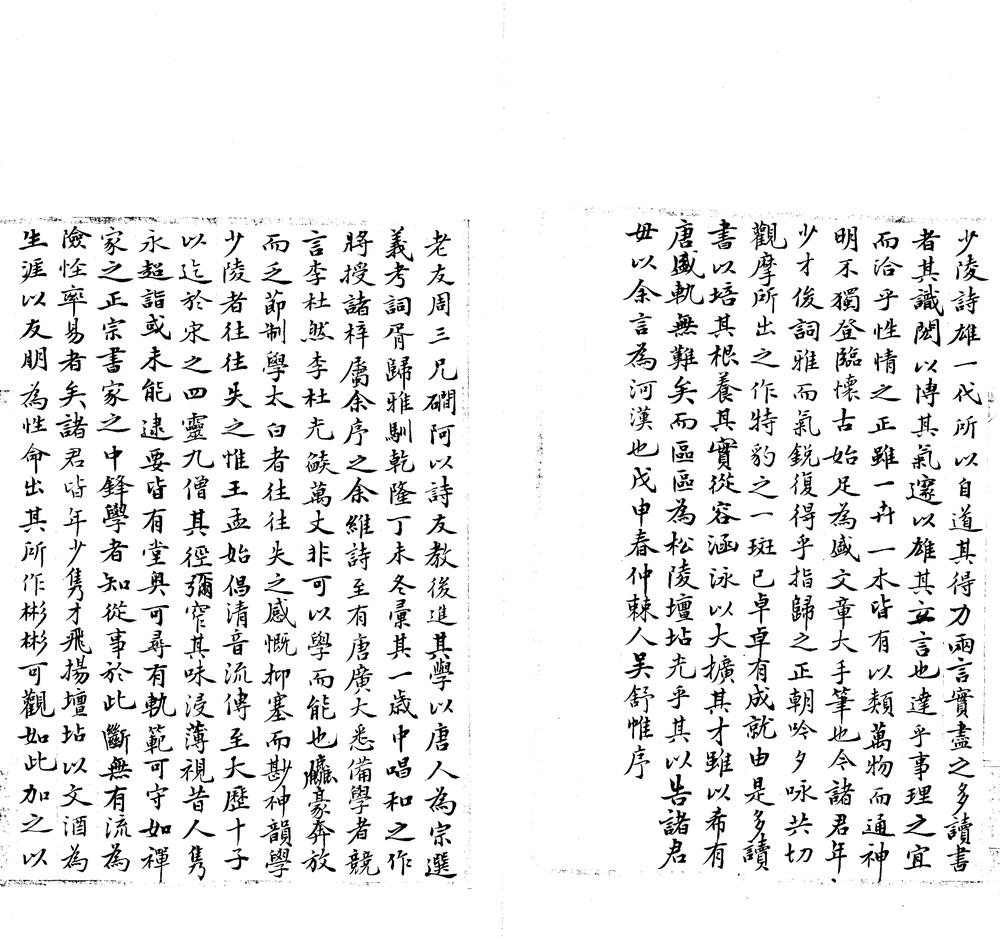 少陵詩雄一代所以自道其得力兩言實盡之多讀書
者其識閎以博其氣邃以雄其立言也達乎事理之宜
而洽乎性情之正雖一卉一木皆有以類萬物而通神
明不獨登臨懷古始足為盛文章大手筆也今諸君年
少才俊詞雅而氣銳復得乎指歸之正朝吟夕咏共切
觀摩所出之作特豹之一斑已卓卓有成就由是多讀
書以培其根養其實從容涵泳以大擴其才雖以希有
唐盛軌無難矣而區區為松陵壇坫光乎其以告諸君
毋以余言為河漢也戊申春仲棘人吴舒帷序
老友周三兄磵阿以詩友教後進其學以唐人為宗選
義考詞胥歸雅馴乾隆丁未冬彙其一歲中唱和之作
將授諸梓屬余序之余維詩至有唐廣大悉備學者競
言李杜然李杜光燄萬丈非可以學而能也麤豪奔放
而乏節制學太白者往往失之感慨抑塞而尠神韻學
少陵者往往失之惟王孟始倡清音流傳至大歷十子
以迄於宋之四靈九僧其徑彌窄其味浸薄視昔人雋
永超詣或未能逮要皆有堂奥可尋有軌範可守如禪
家之正宗書家之中鋒學者知從事於此斷無有流為
險怪率易者矣諸君皆年少雋才飛揚壇坫以文酒為
生涯以友朋為性命出其所作彬彬可觀如此加之以